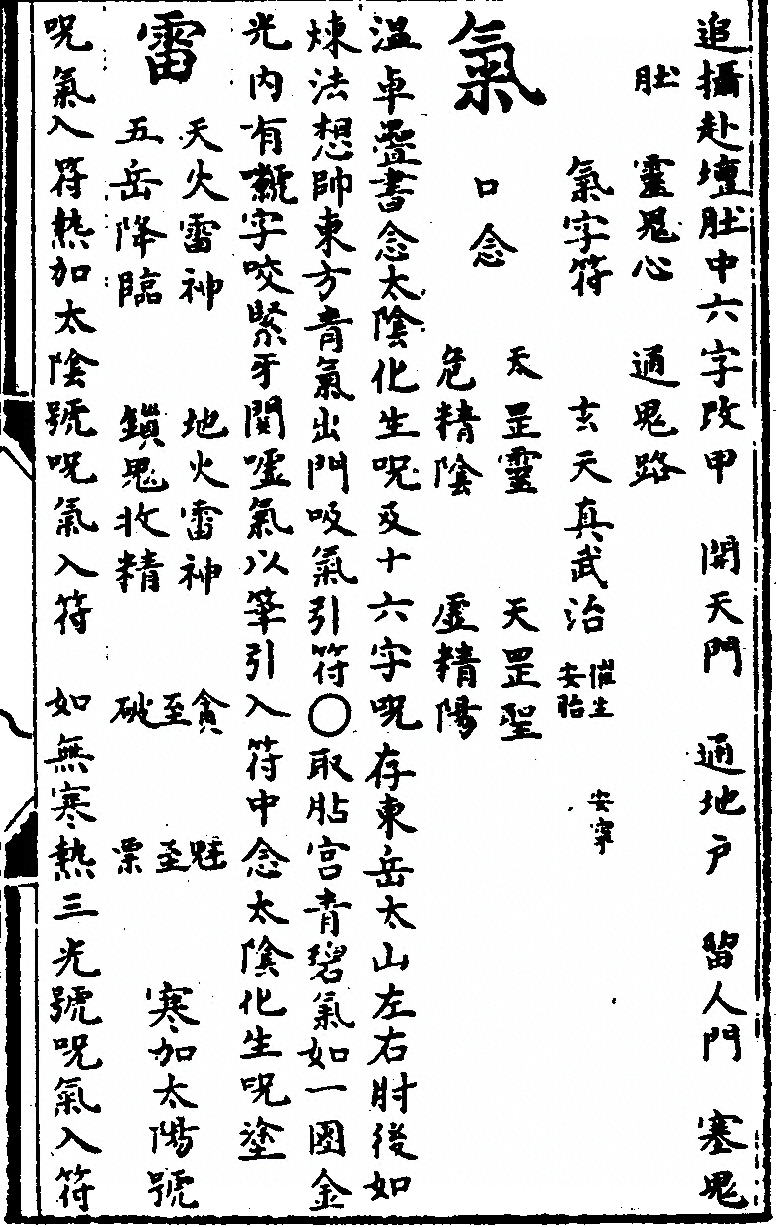 追攝赴壇肚中六字改甲　開天門　通地户　留人門　塞鬼
肚　靈鬼心　通鬼路
氣字符　玄天真武治　催生　安胎　安寧
氣　口念　天罡靈　天罡聖
危精陰　虛精陽
溫卓疊書念太陰化生呪及十六字呪存東岳太山左右肘後如
煉法想帥東方青氣出門吸氣引符〇取胋宫青碧氣如一團金
光內有字咬緊牙關噓氣以筆引入符中念太陰化生呪塗
雷　天火雷神　地火雷神　貪至破　魁至罡　寒加太陽號
五岳降臨　鎖鬼收精
呪氣入符熱加太陰號呪氣入符　如無寒熱三光號呪氣入符